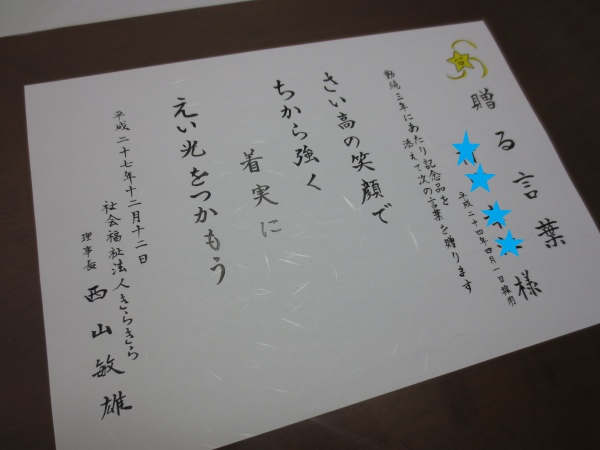 贈る言葉
様
平成二十四年四月一日採用
勤続三年にあたり記念品を
添えて次の言葉を贈ります
さい高の笑顔で
ちから強く
着実に
えい光をつかもう
平成二十七年十二月十二日
社会福祉法人きらきら
理事長 西山敏雄